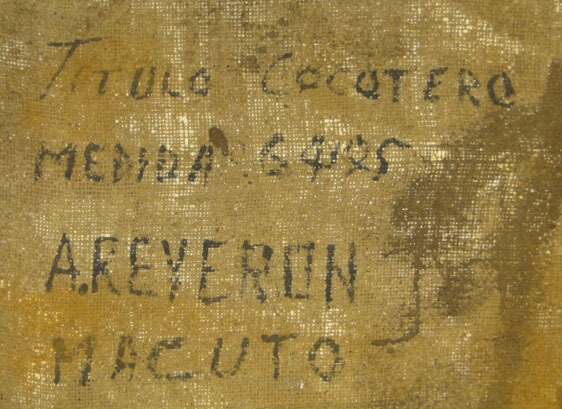 TITULO COCOTERO
MEDIDA
A.REVERON
MACUTO